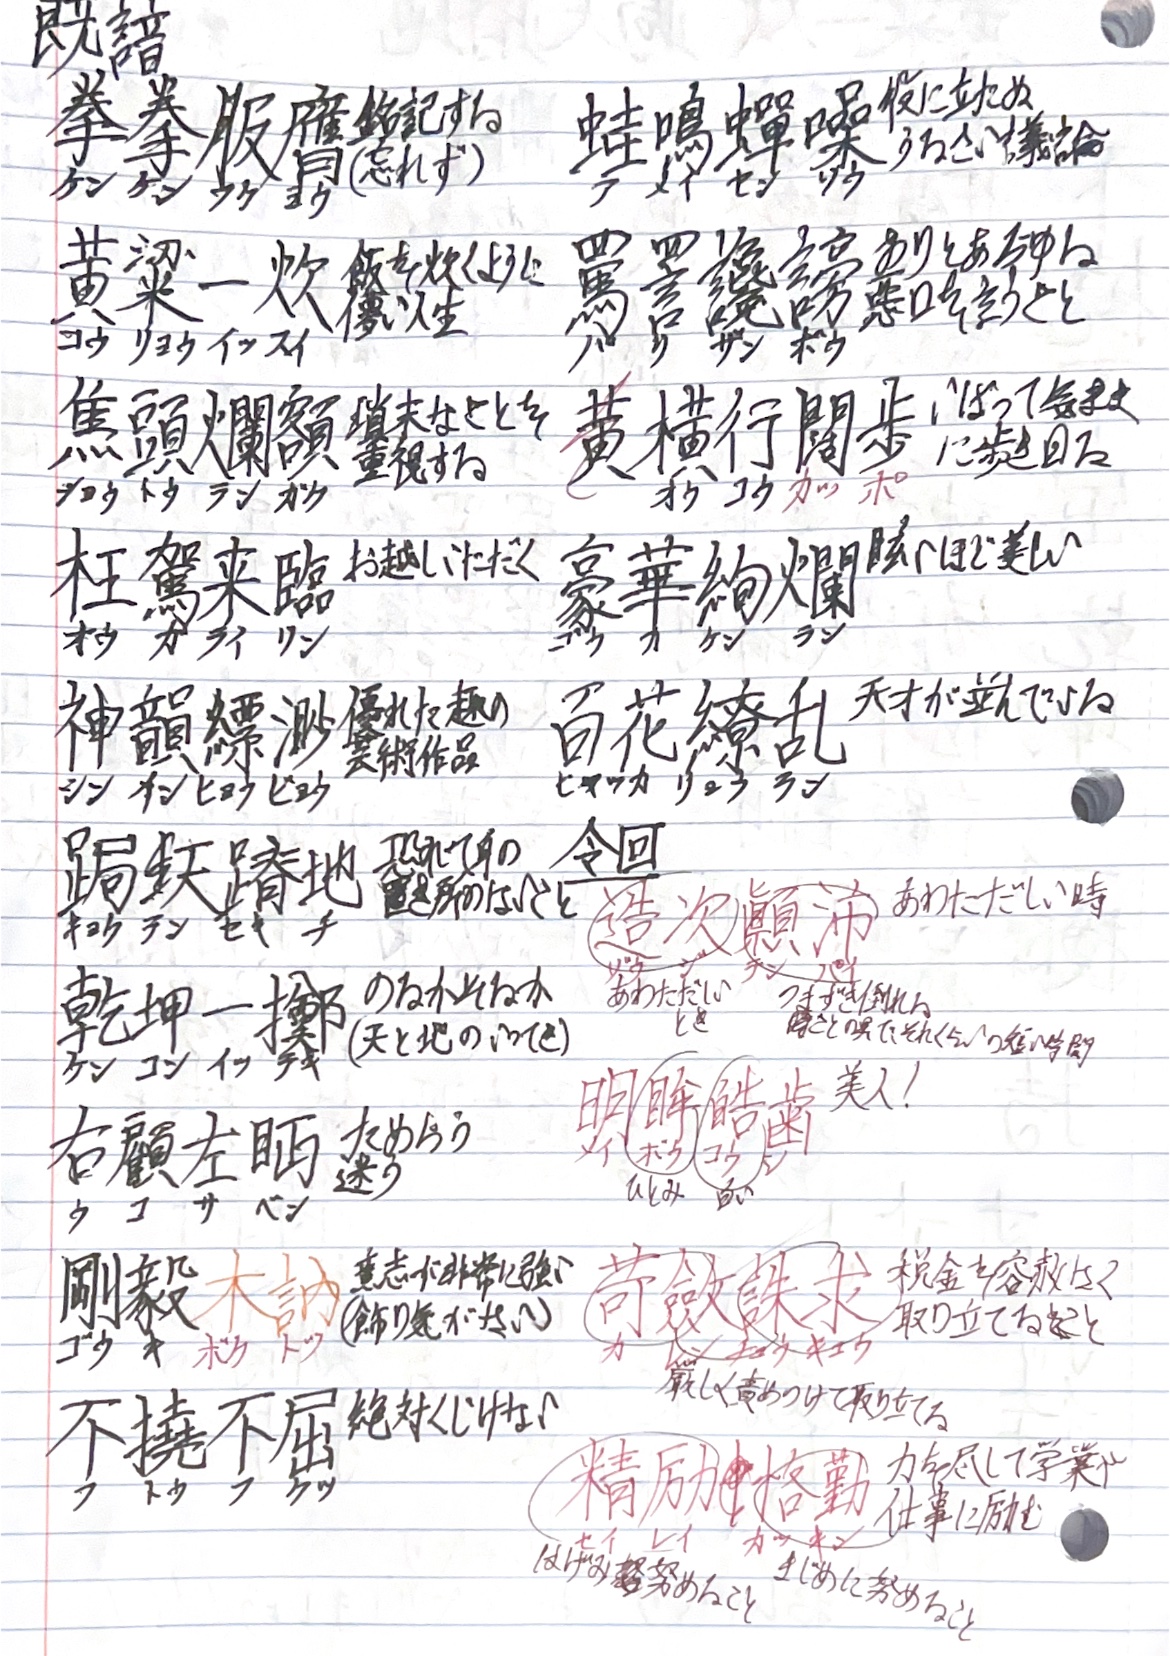 既諳
拳拳服膺 銘記する
(忘れず)
ケン ケン フク ヨウ
黄粱一炊 飯を炊くように
儚い人生
コウ リョウ イッ スイ
焦頭爛額 瑣末なことを
重視する
ショウ トウ ラン ガク
枉駕来臨 お越しいただく
オウ ガ ライ リン
神韻縹渺 優れた趣の
芸術作品
シン イン ヒョウ ビョウ
跼天蹐地 恐れて身の
置き所のないこと
キョク テン セキ チ
乾坤一擲 のるかそるか
(天と地のいってき)
ケン コン イッ テキ
右顧左眄 ためらう
迷う
ウ コ サ ベン
剛毅木訥 意志が非常に強い
(飾り気がない)
ゴウ キ ボク トツ
不撓不屈 絶対くじけない
フ トウ フ クツ
蛙鳴蟬噪 役に立たぬ
うるさい議論
ア メイ セン ソウ
罵詈讒謗 ありとあらゆる
悪口を言うこと
バ リ ザン ボウ
黄横行闊歩 いばって気まま
に歩き回る
オウ コウ カッ ポ
豪華絢爛 眩いほど美しい
ゴウ カ ケン ラン
百花繚乱 天才が並んでいる
ヒャッカ リョウ ラン
今回
造次顚沛 あわただしい時
ゾウ ジ テン パイ
あわただしい
とき
つまずき倒れる
ことの意で、それくらいの短い時間
明眸皓歯 美人!
メイ ボウ コウ シ
ひとみ 白い
苛斂誅求 税金を容赦なく
取り立てること
カ レン チュウ キュウ
厳しく責めつけて取り立てる
精励恪勤 力を尽して学業や
仕事に励む
セイ レイ カッ キン
はげみ努めること まじめに努めること